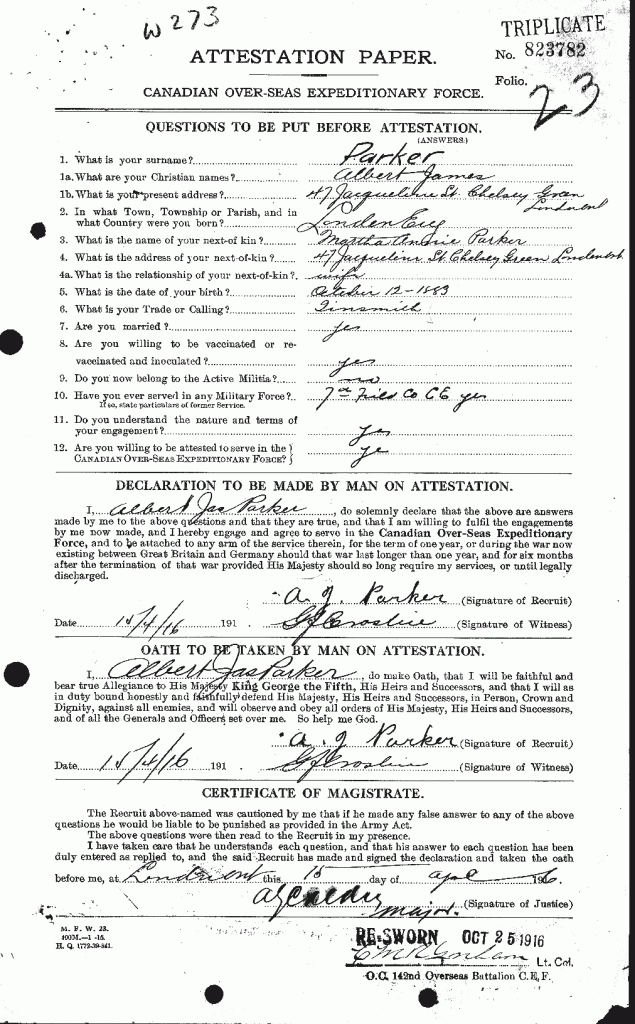 W 273
TRIPLICATE
ATTESTATION PAPER.
No. 823782
Folio.
23
CANADIAN OVER-SEAS EXPEDITIONARY FORCE.
QUESTIONS TO BE PUT BEFORE ATTESTATION.
(ANSWERS.)
1. What is your surname? Parker
1a. What are your Christian names? Albert James
1b. What is your present address? 47 Jacqueline St. Chelsey Green
Londonont
2. In what Town, Township or Parish, and in
what Country were you born? London Eng
3. What is the name of your next-of kin? Martha Annie Parker
4. What is the address of your next-of-kin? 47 Jacqueline St Chelsey Green Londonont
4a. What is the relationship of your next-of-kin? wife
5. What is the date of your birth? October 12-1883
6. What is your Trade or Calling? Tinsmith
7. Are you married? yes
8. Are you willing to be vaccinated or re-
vaccinated and inoculated? yes
9. Do you now belong to the Active Militia? no
10. Have you ever served in any Military Force? 7th Field Co C E yes
If so, state particulars of former Service.
11. Do you understand the nature and terms of
your engagement? yes
12. Are you willing to be attested to serve in the
CANADIAN OVER-SEAS EXPEDITIONARY FORCE? ye
DECLARATION TO BE MADE BY MAN ON ATTESTATION.
I, Albert Jas Parker, do solemnly declare that the above are answers
made by me to the above questions and that they are true, and that I am willing to fulfil the engagements
by me now made, and I hereby engage and agree to serve in the Canadian Over-Seas Expeditionary
Force, and to be attached to any arm of the service therein, for the term of one year, or during the war now
existing between Great Britain and Germany should that war last longer than one year, and for six months
after the termination of that war provided His Majesty should so long require my services, or until legally
discharged.
A. J. Parker (Signature of Recruit)
Date 15/4/16 191 . (Signature of Witness)
OATH TO BE TAKEN BY MAN ON ATTESTATION.
I, Albert Jas Parker, do make Oath, that I will be faithful and
bear true Allegiance to His Majesty King George the Fifth, His Heirs and Successors, and that I will as
in duty bound honestly and faithfully defend His Majesty, His Heirs and Successors, in Person, Crown and
Dignity, against all enemies, and will observe and obey all orders of His Majesty, His Heirs and Successors,
and of all the Generals and Officers set over me. So help me God.
A. J. Parker (Signature of Recruit)
Date 15/4/16 191 . (Signature of Witness)
CERTIFICATE OF MAGISTRATE.
The Recruit above-named was cautioned by me that if he made any false answer to any of the above
questions he would be liable to be punished as provided in the Army Act.
The above questions were then read to the Recruit in my presence.
I have taken care that he understands each question, and that his answer to each question has been
duly entered as replied to, and the said Recruit has made and signed the declaration and taken the oath
before me, at Londonont this 15 day of April 1916.
Major. (Signature of Justice)
M. F. W. 23.
400M.—1-15.
H. Q. 1772-39-841.
RE-SWORN OCT 25 1916
Lt. Col.
O.C. 142nd Overseas Battalion C.E.F.